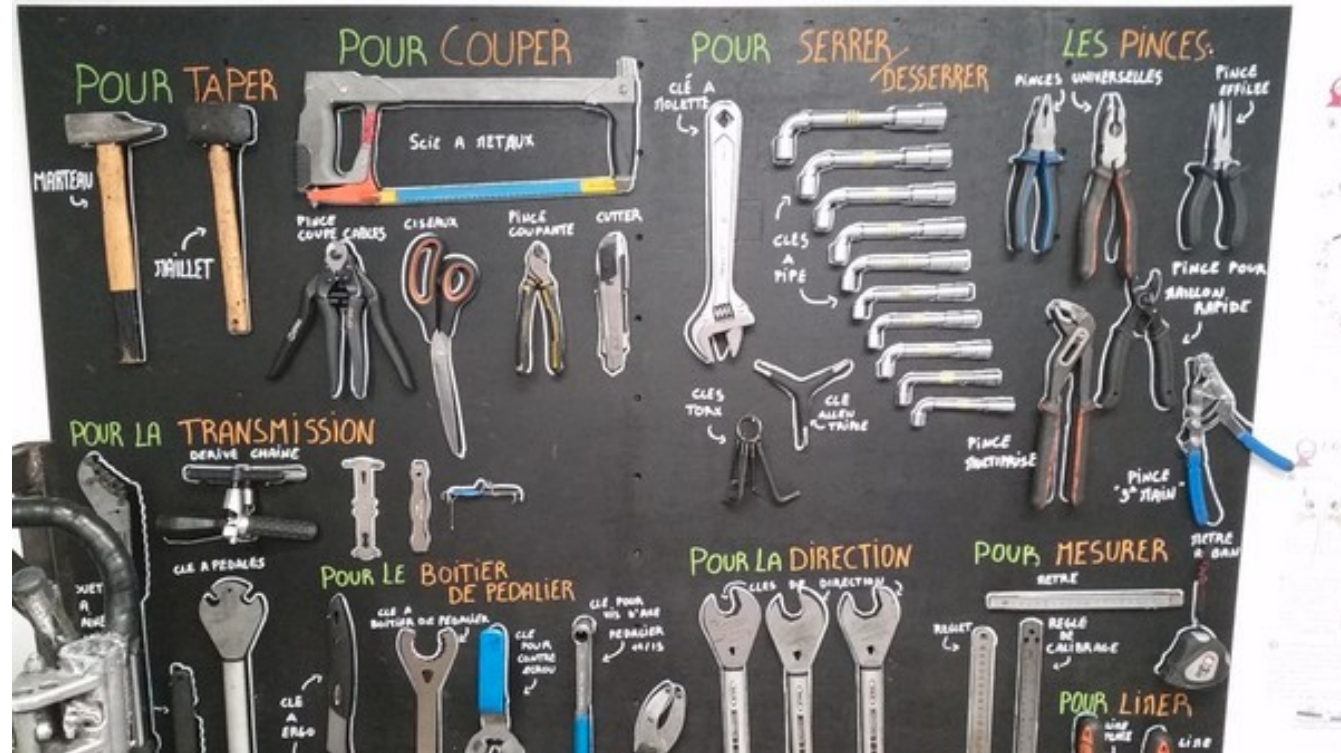 POUR TAPER
MARTEAU
MAILLET
POUR COUPER
SCIE A METAUX
PINCE
COUPE CABLES
CISEAUX
PINCE
COUPANTE
CUTTER
POUR SERRER/
DESSERRER
CLÉ A
MOLETTE
CLÉS
A
PIPE
CLES
TORX
CLÉ
ALLEN
TRIPLE
LES PINCES
PINCES UNIVERSELLES
PINCE
EFFILEE
PINCE POUR
MAILLON
RAPIDE
PINCE
MULTIPRISE
PINCE
"3E MAIN"
POUR LA TRANSMISSION
DERIVE CHAÎNE
CLE A PEDALES
POUR LE BOITIER
DE PEDALIER
CLE
A
ERGO
CLE A
BOITIER DE PEDALIER
CLE
POUR
CONTRE
ECROU
CLE POUR
VIS D'AXE
PEDALIER
POUR LA DIRECTION
CLES DE DIRECTION
POUR MESURER
METRE
REGLET
REGLE
DE
CALIBRAGE
METRE
A BAN
POUR LIMER
LIME